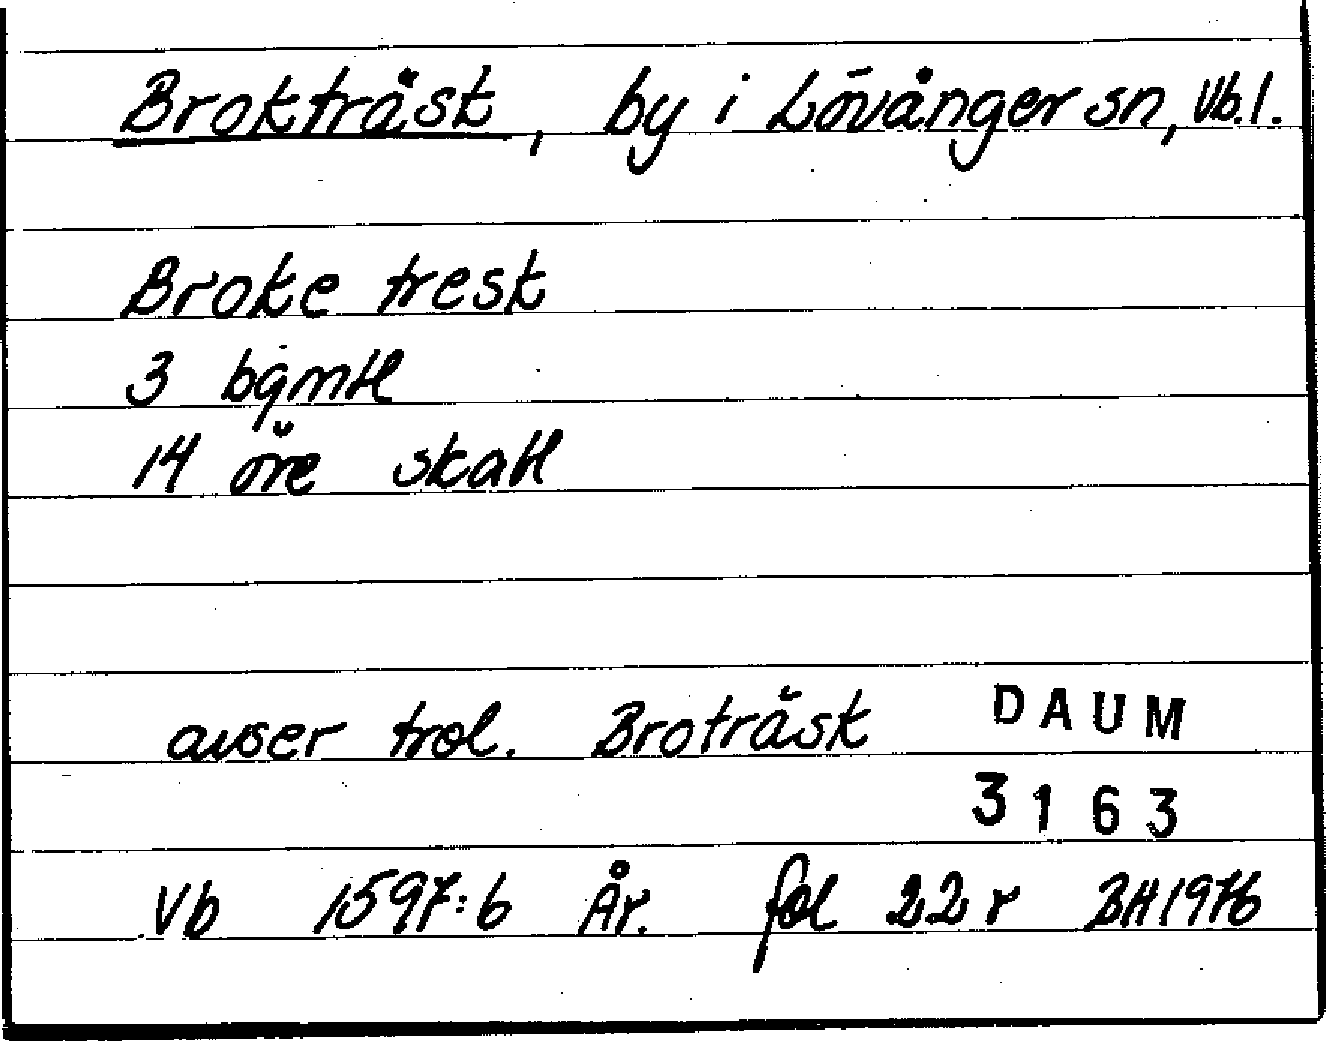 Brokträsk, by i Lövånger sn, Vb.l.
Broke tresk
3 bgmtl
14 öre skatt
avser trol. Broträsk
DAUM
3163
Vb 1597:6 År. fol 22 r BH1976